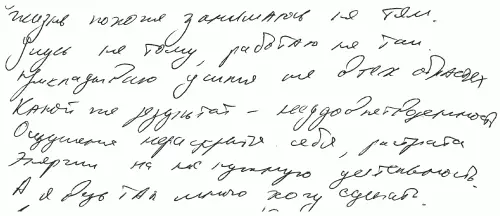 Жизнь похоже занимаюсь не тем.
Учусь не тому, работаю не там.
Прикладываю усилия не в тех областях
Какой же результат – неудовлетворенность
Ощущение нераскрытия себя, растрата
Энергии на ненужную деятельность.
А я ведь так много хочу сделать.